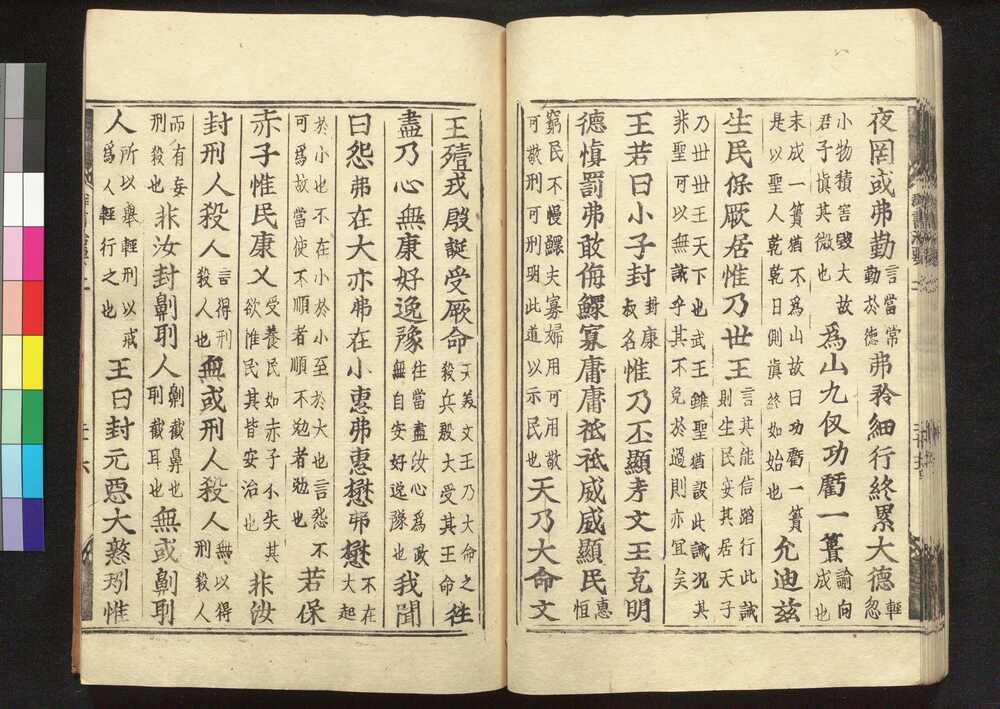 夜罔或弗勤言當常勤於德弗矜細行終累大德輕忽
小物積害毀大故君子慎其微也爲山九仞功虧一簣諭向成也
末成一簣猶不爲山故曰功虧一簣是以聖人乾乾日側慎終如始也允迪兹
生民保厥居惟乃世王言其能信蹈行此誡則生民安其居天子
乃世世王天下也武王雖聖猶設此誡況其非聖可以無誡乎其不免於過則亦冝矣
王若曰小子封封康叔名惟乃丕顯考文王克明
德慎罰弗敢侮鰥寡庸庸祗祗威威顯民惠恒
窮民不慢鰥夫寡婦用可用敬可敬刑可刑明此道以示民也天乃大命文
王殪戎殷誕受厥命天美文王乃大命之殺兵殷大受其王命往
盡乃心無康好逸豫往當盡汝心爲政無自安好逸豫也我聞
曰怨弗在大亦弗在小惠弗惠懋弗懋不在大起
於小也不在小小於小至於大也言怨不可爲故當使不順者順不勉者勉也若保
赤子惟民康乂受養民如赤子不失其欲惟民其皆安治也非汝
封刑人殺人言得刑殺人也無或刑人殺人無以得刑殺人
而有妄刑殺也非汝封劓刵人劓截鼻也刵截耳也無或劓刵
人所以舉輕刑以戒爲人輕行之也王曰封元惡大憝矧惟